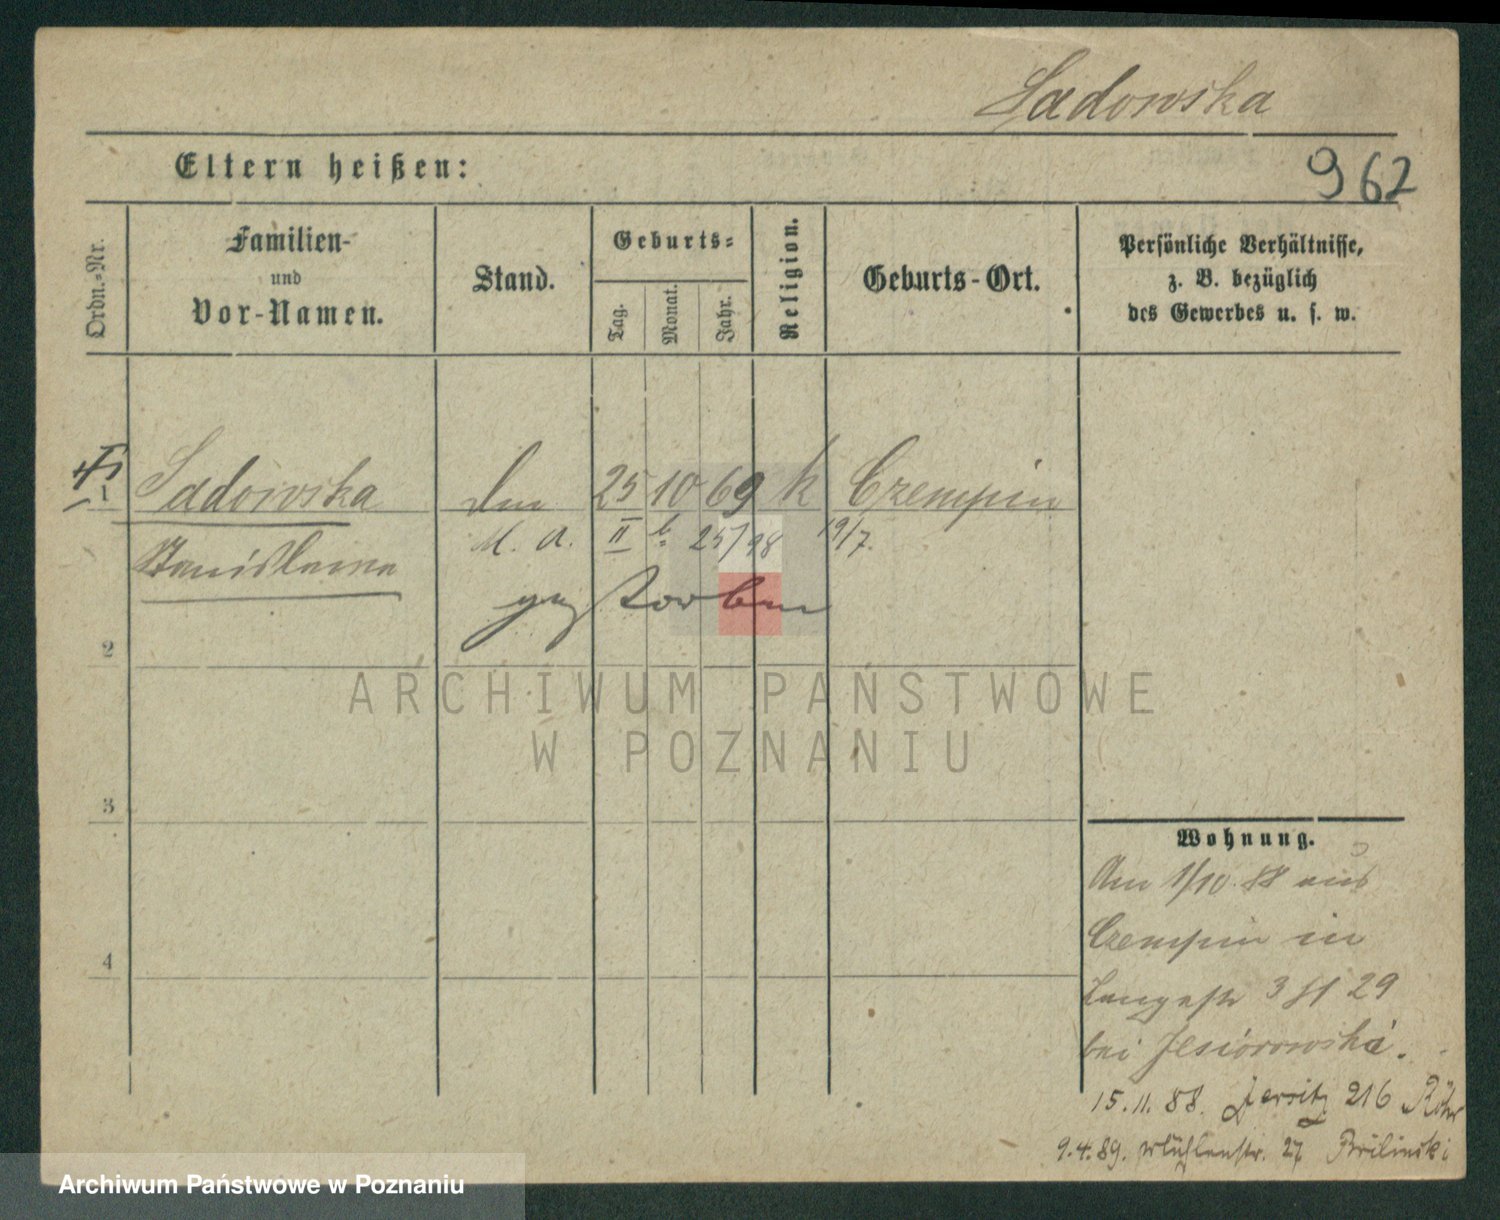 Sadowska
Eltern heißen:
962
Ordn.-Nr.
Familien-
und
Vor-Namen.
Stand.
Geburts-
Tag.
Monat.
Jahr.
Religion.
Geburts-Ort.
Persönliche Verhältnisse,
z. B. bezüglich
des Gewerbes u. s. w.
1
Sadowska 25 10 69 k Czempin
M. A. II b. 25/98 19/7.
Stanislawa
gestorben
2
3
4
ARCHIWUM PAŃSTWOWE
W POZNANIU
Wohnung.
Am 1/10. 88 aus
Czempin in
Langestr 3 29
bei Jesiorowska.
15. 11. 88. Jersitz 216 Röhr
9. 4. 89. Mühlenstr. 27 Brilinski
Archiwum Państwowe w Poznaniu